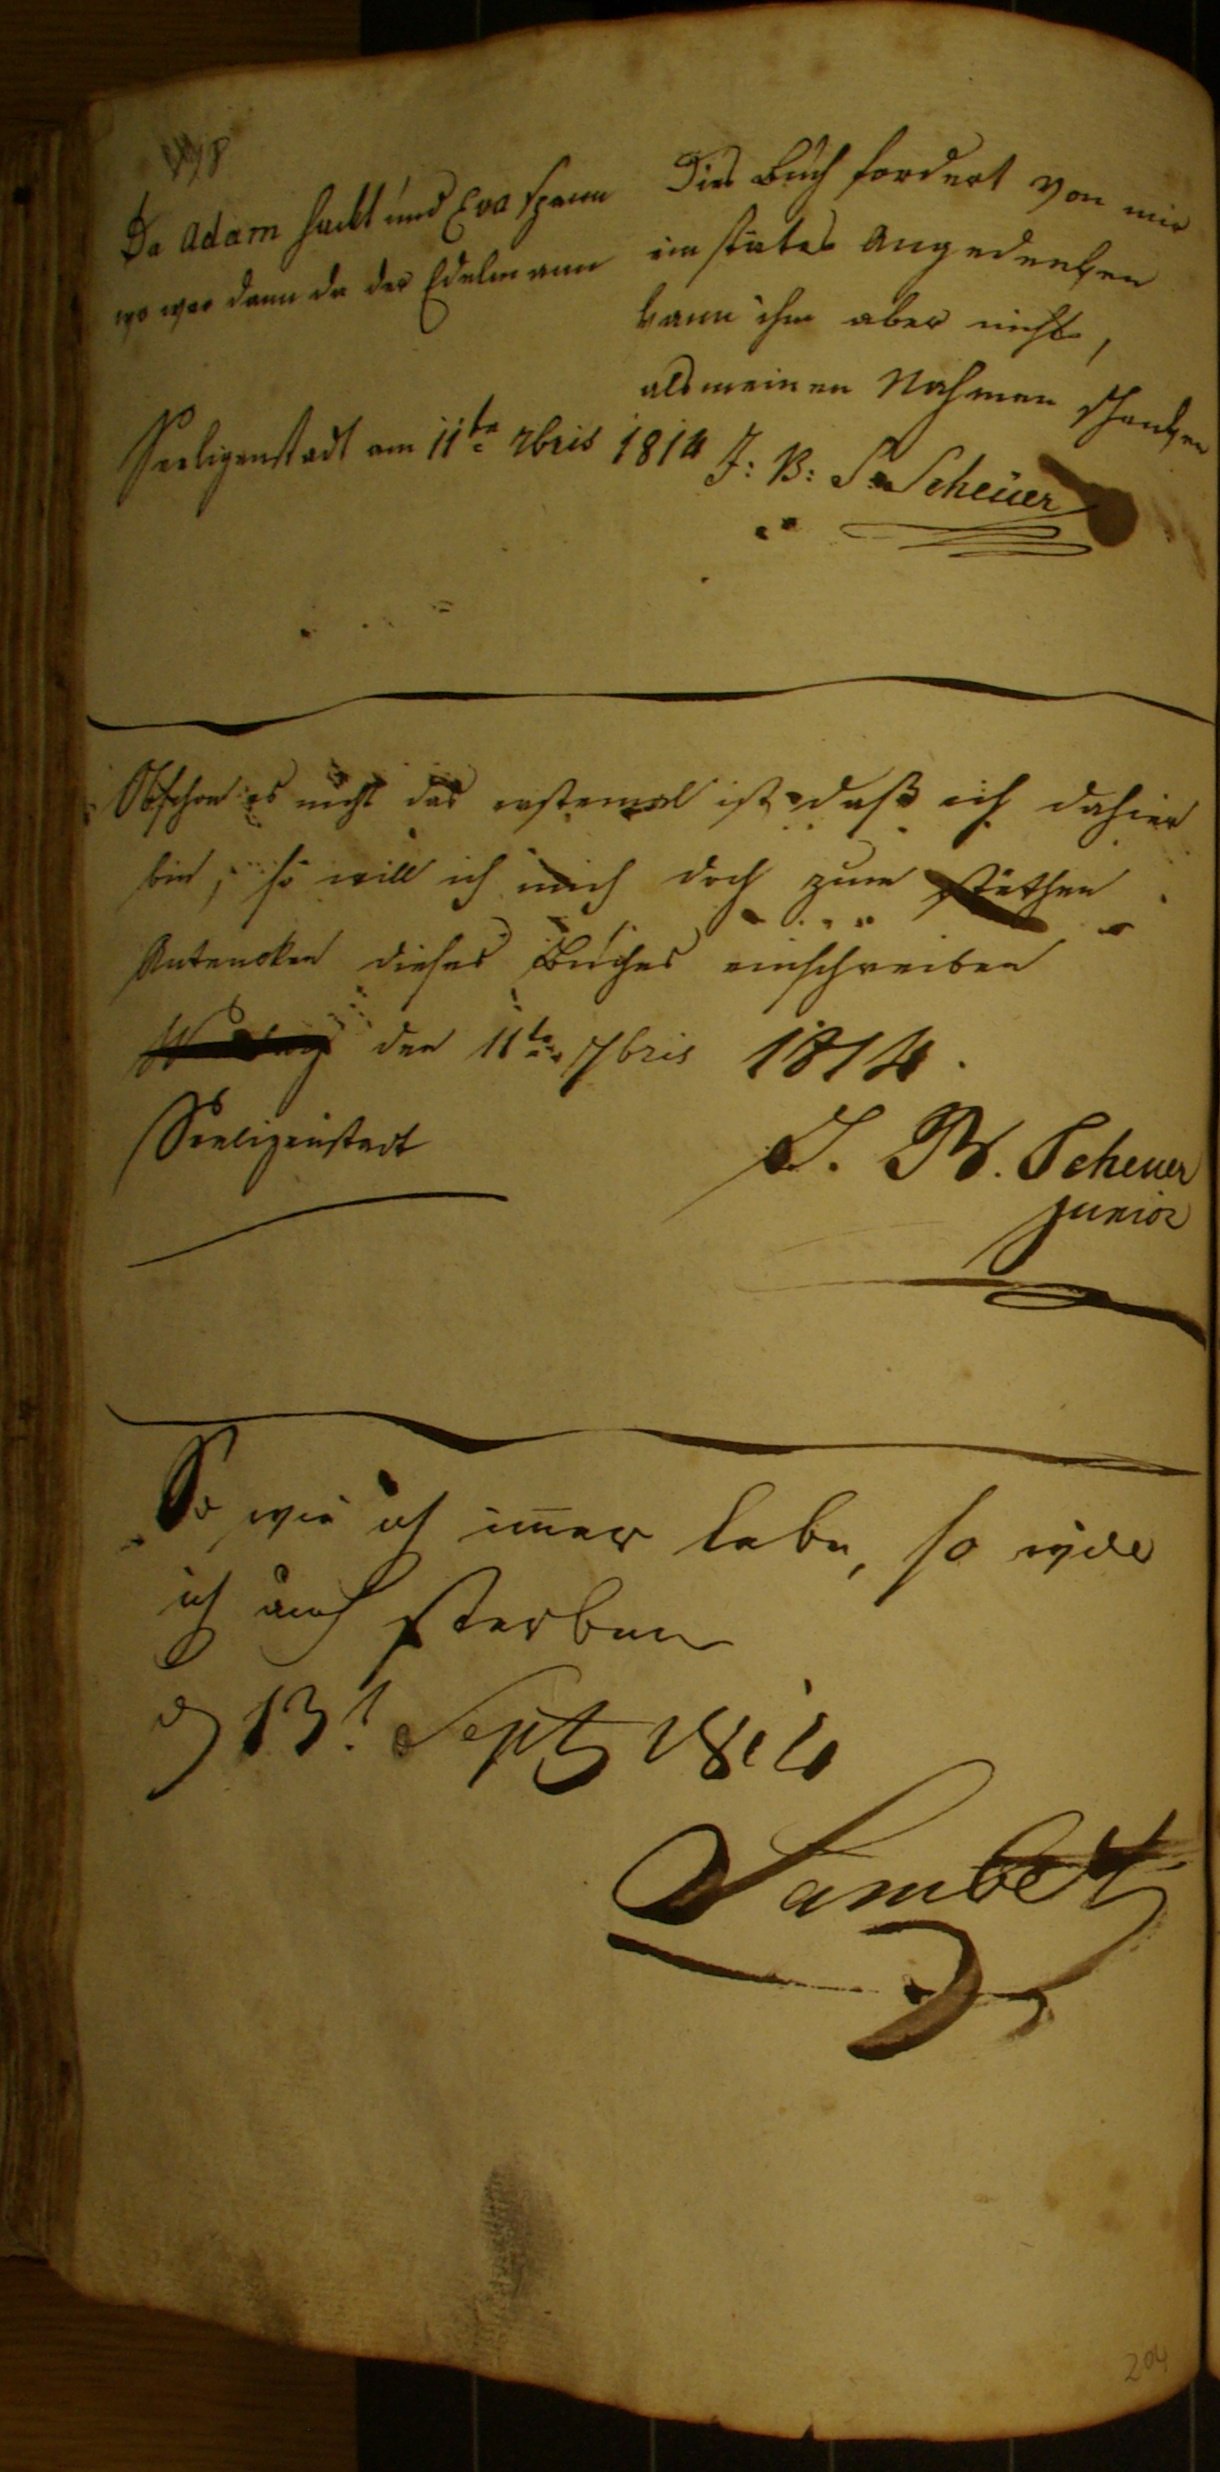 Da Adam hackt und Eva spann
wo war dann da der Edelmann
Dies Buch fordert von mir
ein stätes Angedenken
kann ihm aber nichts,
als meinen Nahmen schenken
Seeligenstadt am 11te 7bris 1814
J: B: Scheüer
Obschon es nicht das erstemal ist daß ich dahier
bin, so will ich mich doch zum stäthen
Antencken dieses Buches einschreiben
den 11te 7bris 1814.
Seeligenstadt
J. B. Scheuer
junior
So wie ich im̄er lebe, so
ich auch sterben
d 13t Sept 1814
Lambert
204